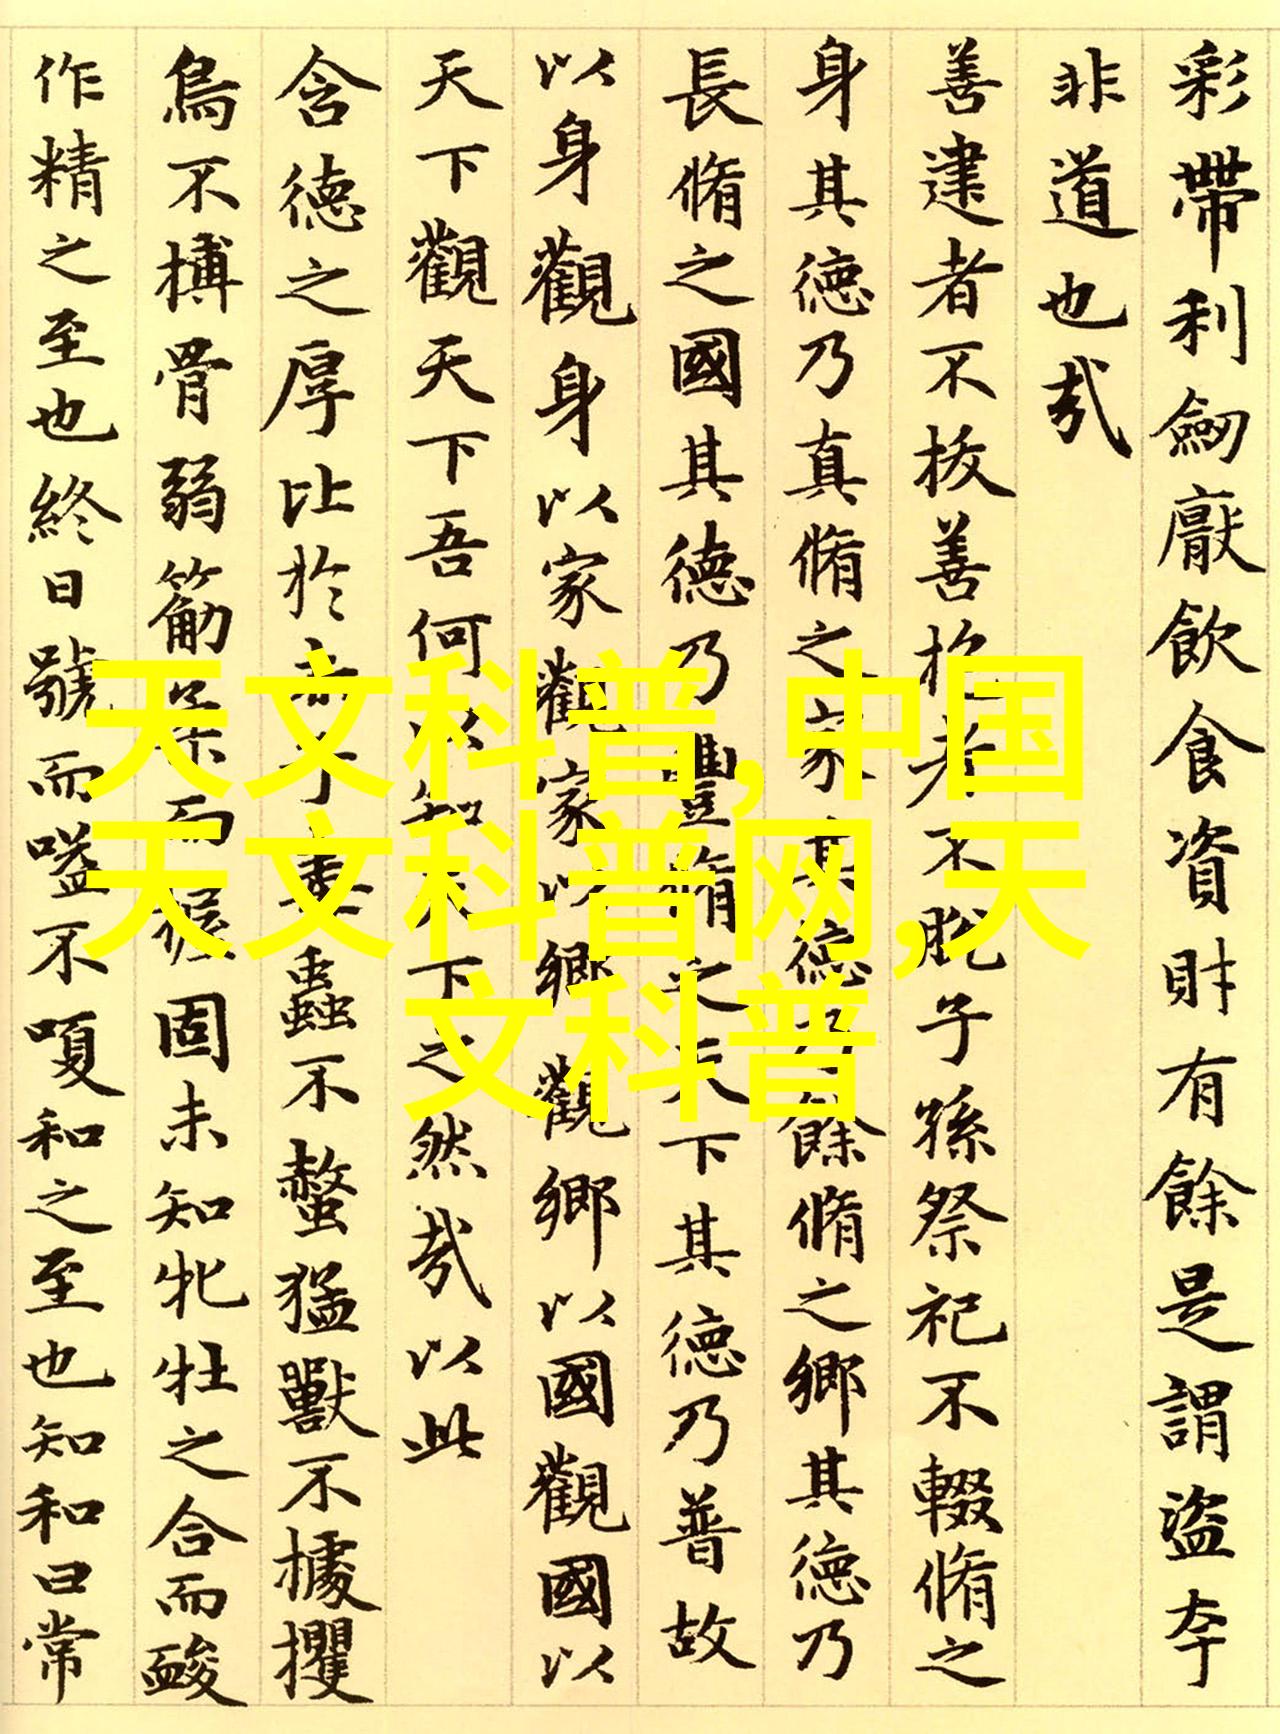 彩帶利劒厭飲食資財有餘是謂盜夸
非道也㢤
善建者不拔善抱者不脫子孫祭祀不輟脩之
身其德乃真脩之家其德乃餘脩之鄉其德乃
長脩之國其德乃豐脩之天下其德乃普故
以身觀身以家觀家以鄉觀鄉以國觀國以
天下觀天下吾何以知天下之然㢤以此
含德之厚比於赤子毒蟲不螫猛獸不據攫
鳥不搏骨弱筋柔而握固未知牝牡之合而酸
作精之至也終日號而嗌不嗄和之至也知和曰常
天文科普,中国
天文科普网,天
文科普